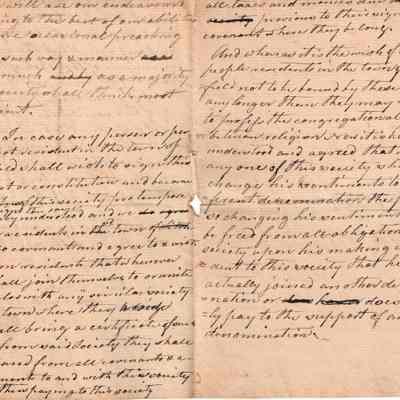 will use our endeavours
ing to the best of our abilit
be occasional preaching
such way & manner
much as a majority
society shall think most
ient.
In case any person or per
not resident in the town of
ed shall wish to sign this
or constitution and become
of this society protempore
understood and we
residents in the town of
covenant and agree to & with
non residents that whenever
all join themselves to or unite
with any similar society
town where they
all bring a certificate from
from said society they shall
ased from all covenants &
ments to and with this society
their paying to this society
all taxes and monies due
previous to their sign
covenant & hence they belong.
And whereas it is the wish of
people residents in the town of
field not to be bound by these
any longer than they may
to profess the congregational
religion & as it is he
understood and agreed that
any one of this society who
change his sentiments to
ferent denomination the
so changing his sentiments
be freed from all obligation
society upon his making e
dent to this society that he
actually joined another de
nation or does
ly pay to the support of an
denomination.